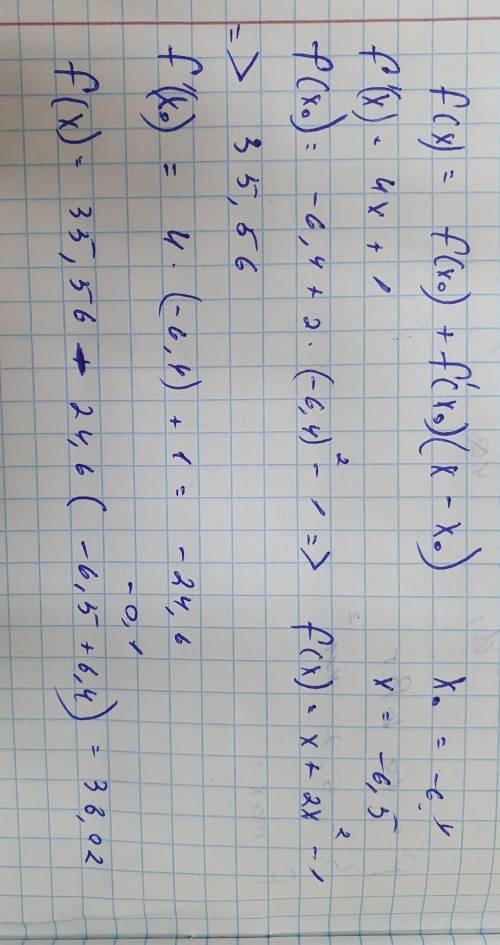 f(x) = f(x₀) + f'(x₀)(x - x₀)   x₀ = -6,4
f'(x) = 4x + 1   x = -6,5
f(x₀) = -6,4 + 2·(-6,4)² - 1 =>   f(x) = x + 2x² - 1
=> 35,56
f'(x₀) = 4·(-6,4) + 1 = -24,6
-0,1
f(x) = 35,56 - 24,6 (-6,5 + 6,4) = 38,02